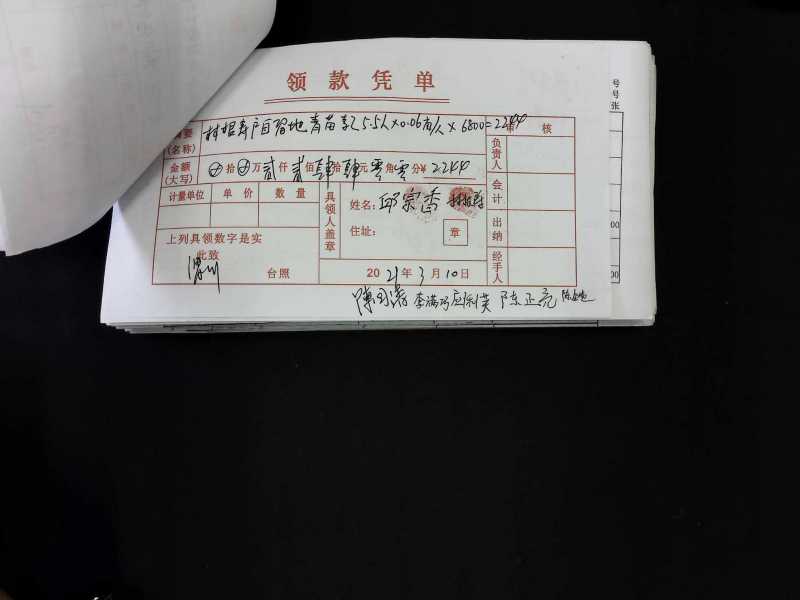 领款凭单
摘要 户自留地青苗款5.5人×0.06亩/人×6800=2244 审核
(名称)
金额 拾 万贰仟贰佰肆拾肆元零角零分¥2244
(大写)
负责人
计量单位 单价 数量
具领人盖章
姓名:邱宗香
会计
住址: 章
出纳
上列具领数字是实
此致
经手人
台照 2021年3月10日
陈正亮
号
号
张
00
00